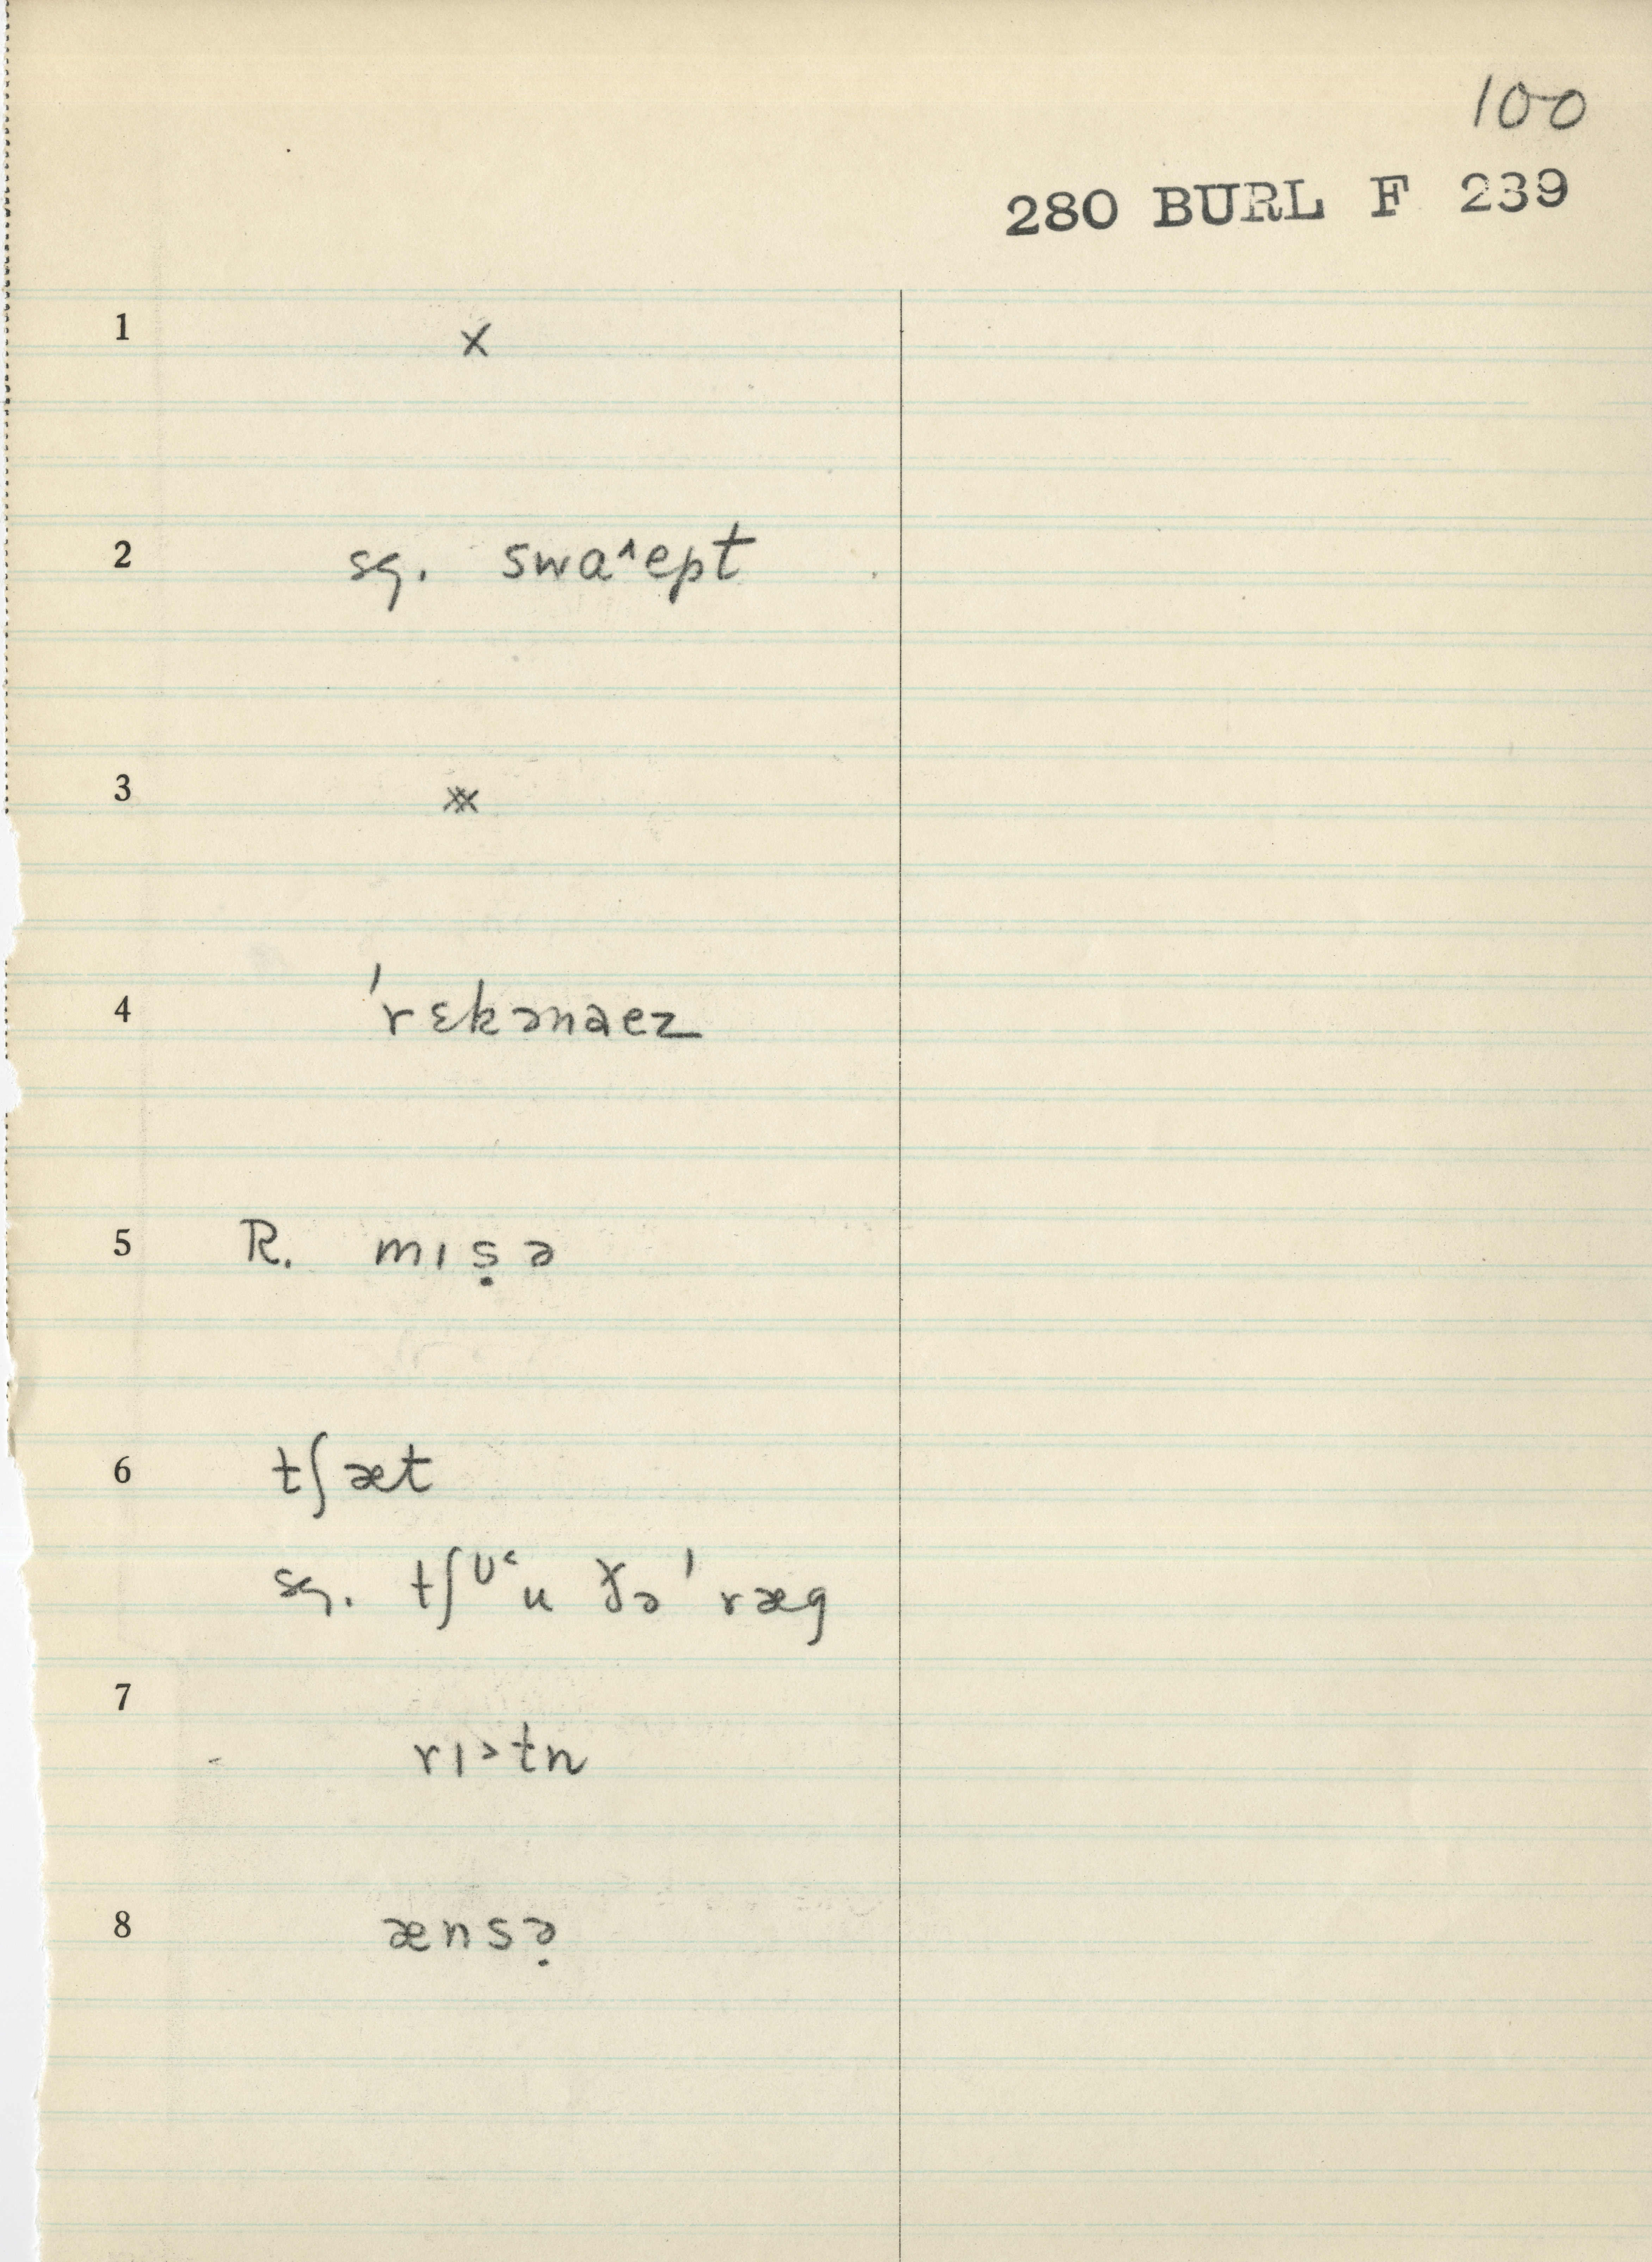 100
280 BURL F 239
1 x
2 sg. swa^ept
3 xx
4 ˈrɛkənaez
5 R. mɪṣə
6 tʃæt
sg. tʃᶷ˂u ɣəˈræg
7 rɪ˃tn
8 ænsə̣